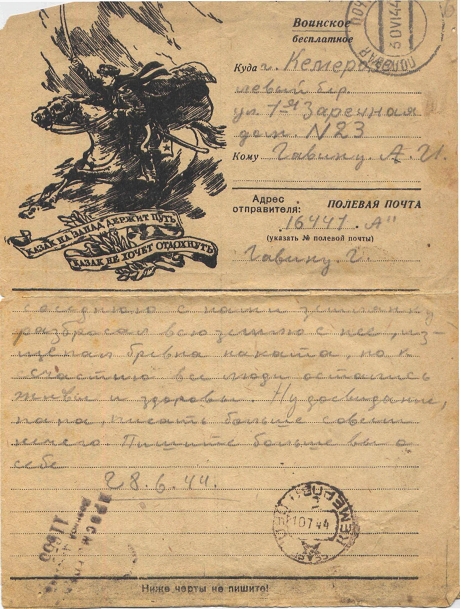 Воинское
бесплатное
Куда г. Кемерово
левый бер.
ул. 1-я Заречная
дом. N23
Кому Гавину. А. И.
Адрес
отправителя: ПОЛЕВАЯ ПОЧТА
16441 „А"
(указать № полевой почты)
Гавину. Г.
КАЗАК НА ЗАПАД ДЕРЖИТ ПУТЬ
КАЗАК НЕ ХОЧЕТ ОТДОХНУТЬ
с нами землянки
разбросал всю землю с нее, из-
щепал бревна наката, но к
счастию все люди остались
живы и здоровы. Ну досвидание,
папа, писать больше совсем
нечего. Пишите больше вы о
себе
28.6.44.
ПРОСМОТРЕНО
Военной Цензурой
11600
10744
Ниже черты не пишите!